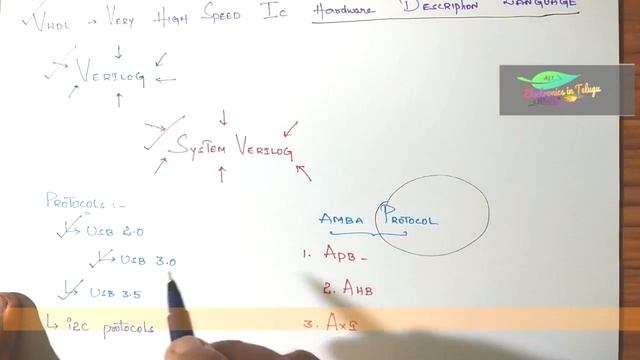 VHDL → VERY HIGH SPEED IC Hardware DESCRIPTION LANGUAGE
VERILOG
SYSTEM VERILOG
PROTOCOLS :-
USB 2.0
USB 3.0
USB 3.5
i2C protocols
AMBA PROTOCOL
1. APB -
2. AHB
3. AXI
Electronics in Telugu